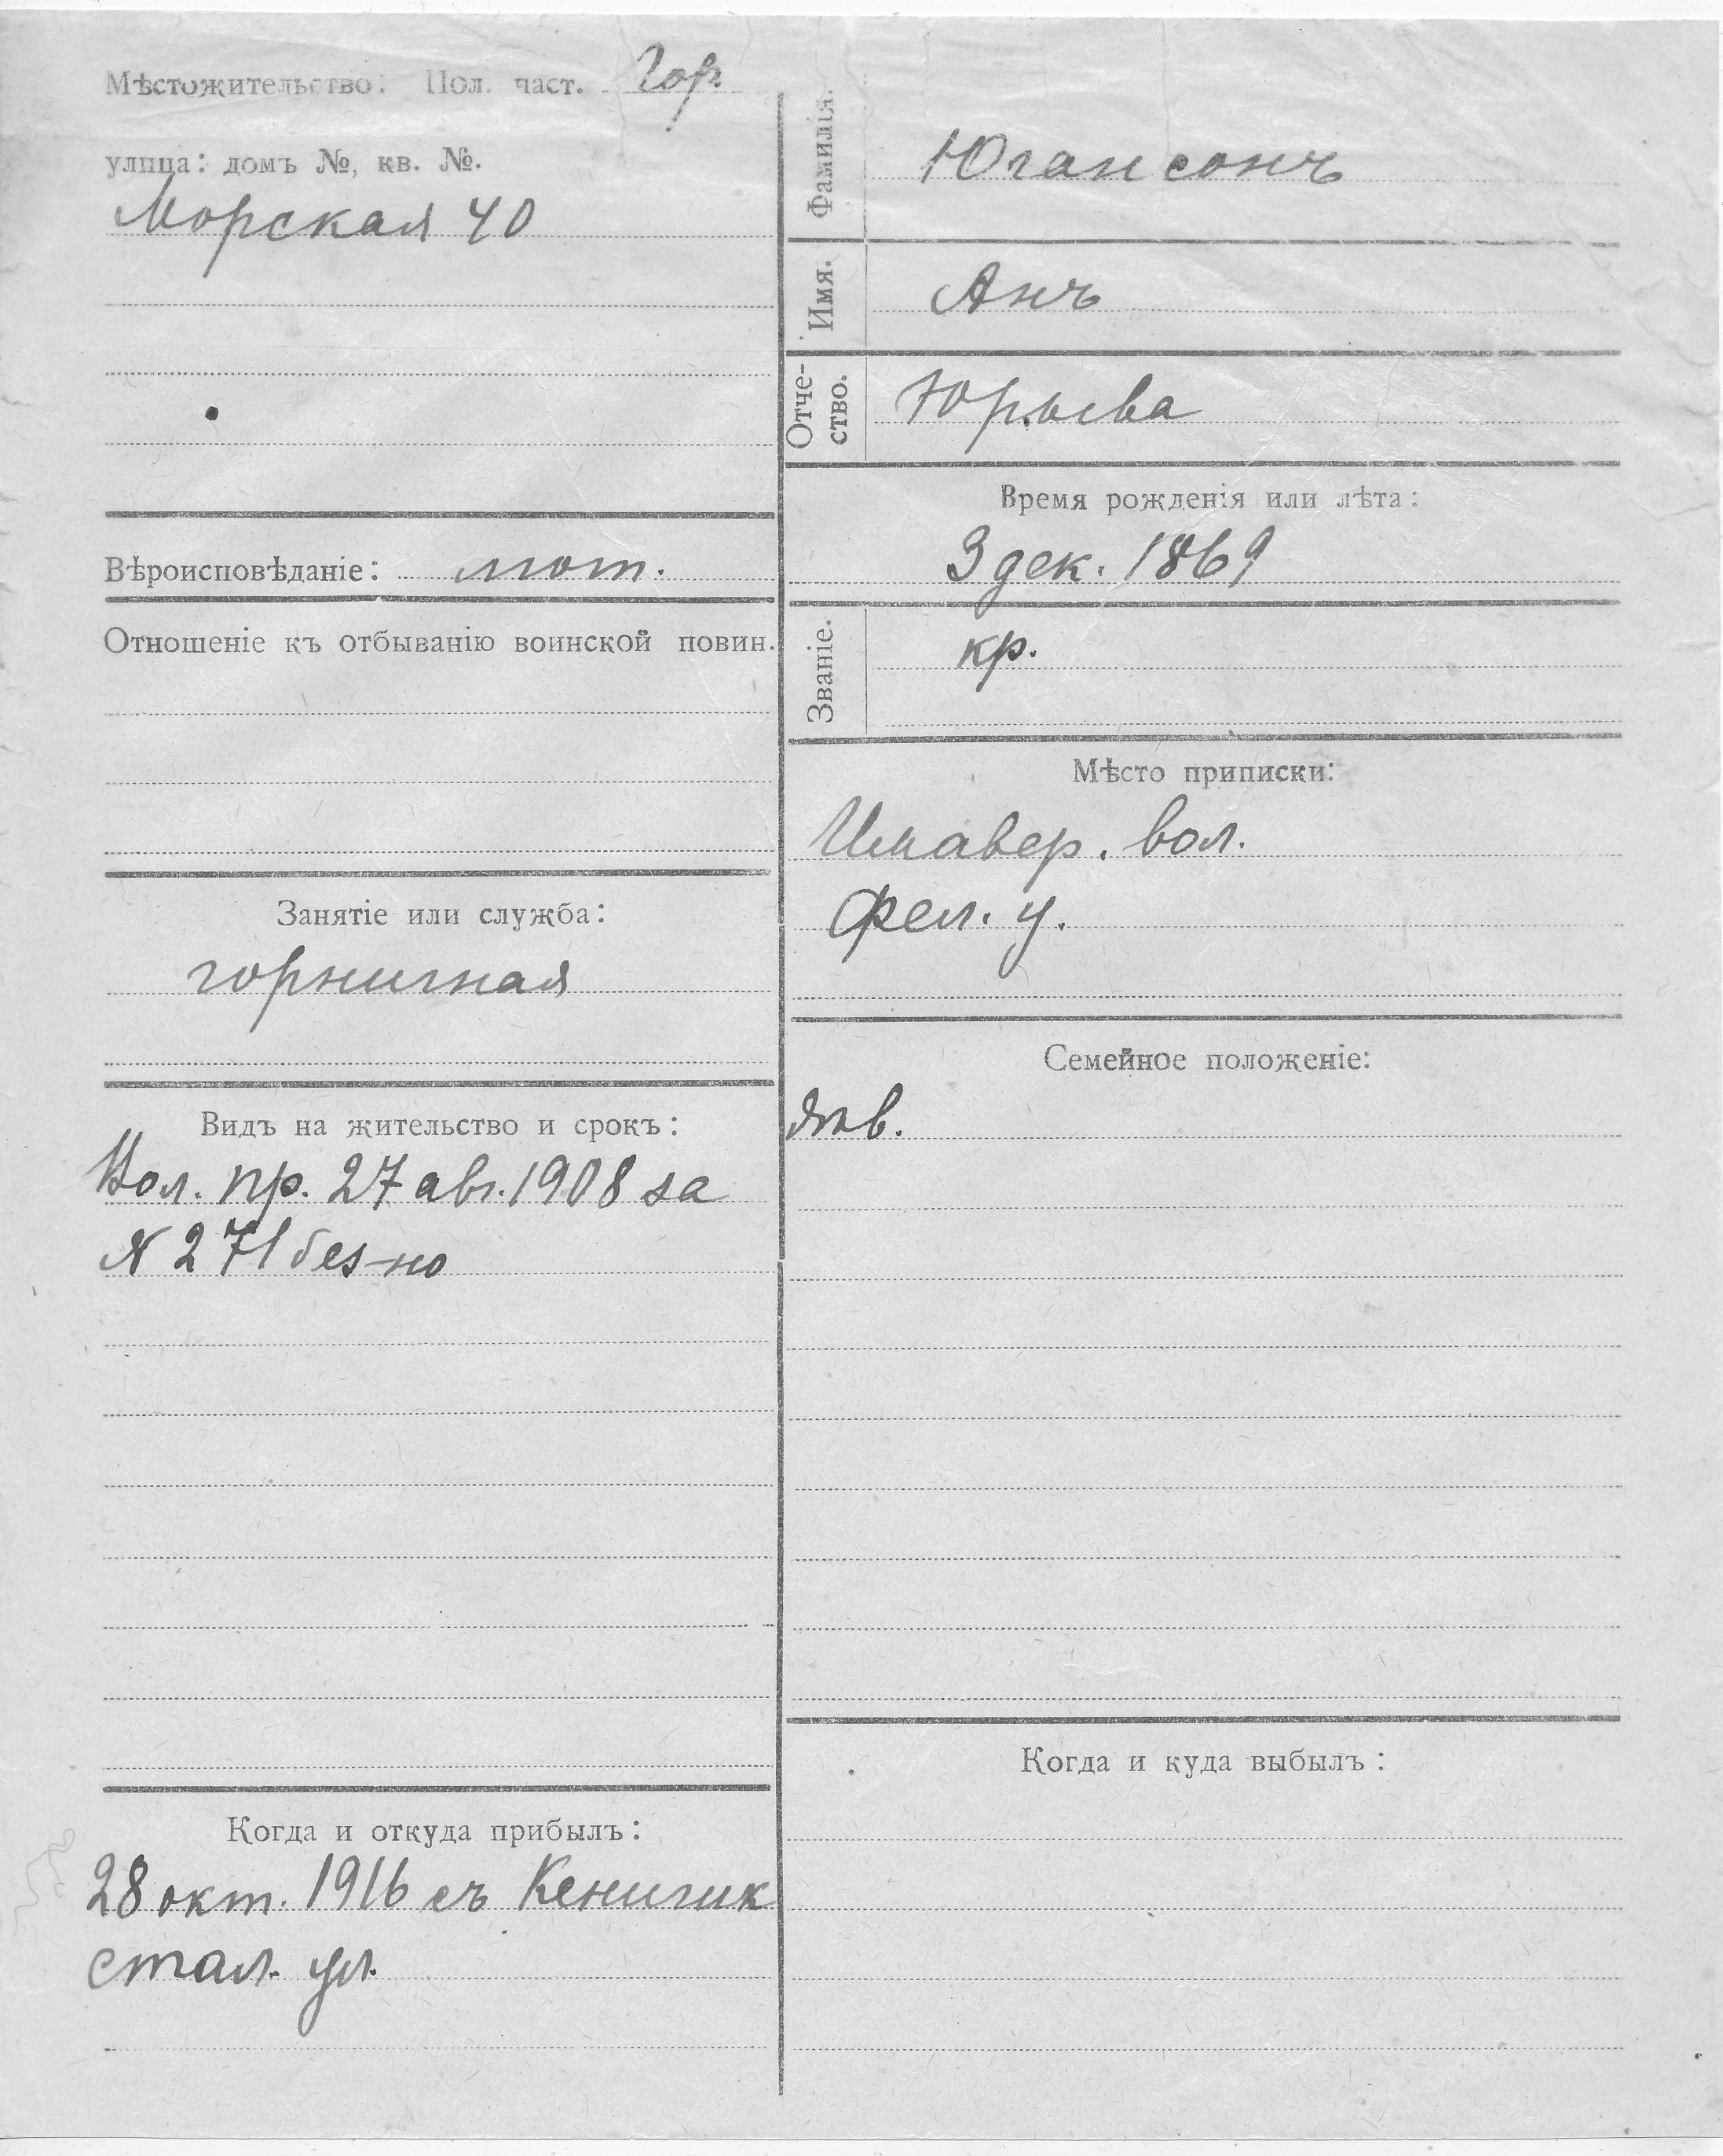 Мѣстожительство: Пол. част. Гор.
улица: домъ №, кв. №.
Морская 40
Вѣроисповѣданіе: лют.
Отношеніе къ отбыванію воинской повин.
Занятіе или служба:
горничная
Видъ на жительство и срокъ:
Вол. пр. 27 авг. 1908 за
№ 271 без-но
Когда и откуда прибылъ:
28 окт. 1916 съ
стал. ул.
Фамилія.
Югансонъ
Имя.
Анъ
Отче-
ство.
Юрьева
Время рожденія или лѣта:
3 дек. 1869
Званіе.
кр.
Мѣсто приписки:
Имавер. вол.
Фел. у.
Семейное положеніе:
Когда и куда выбылъ: